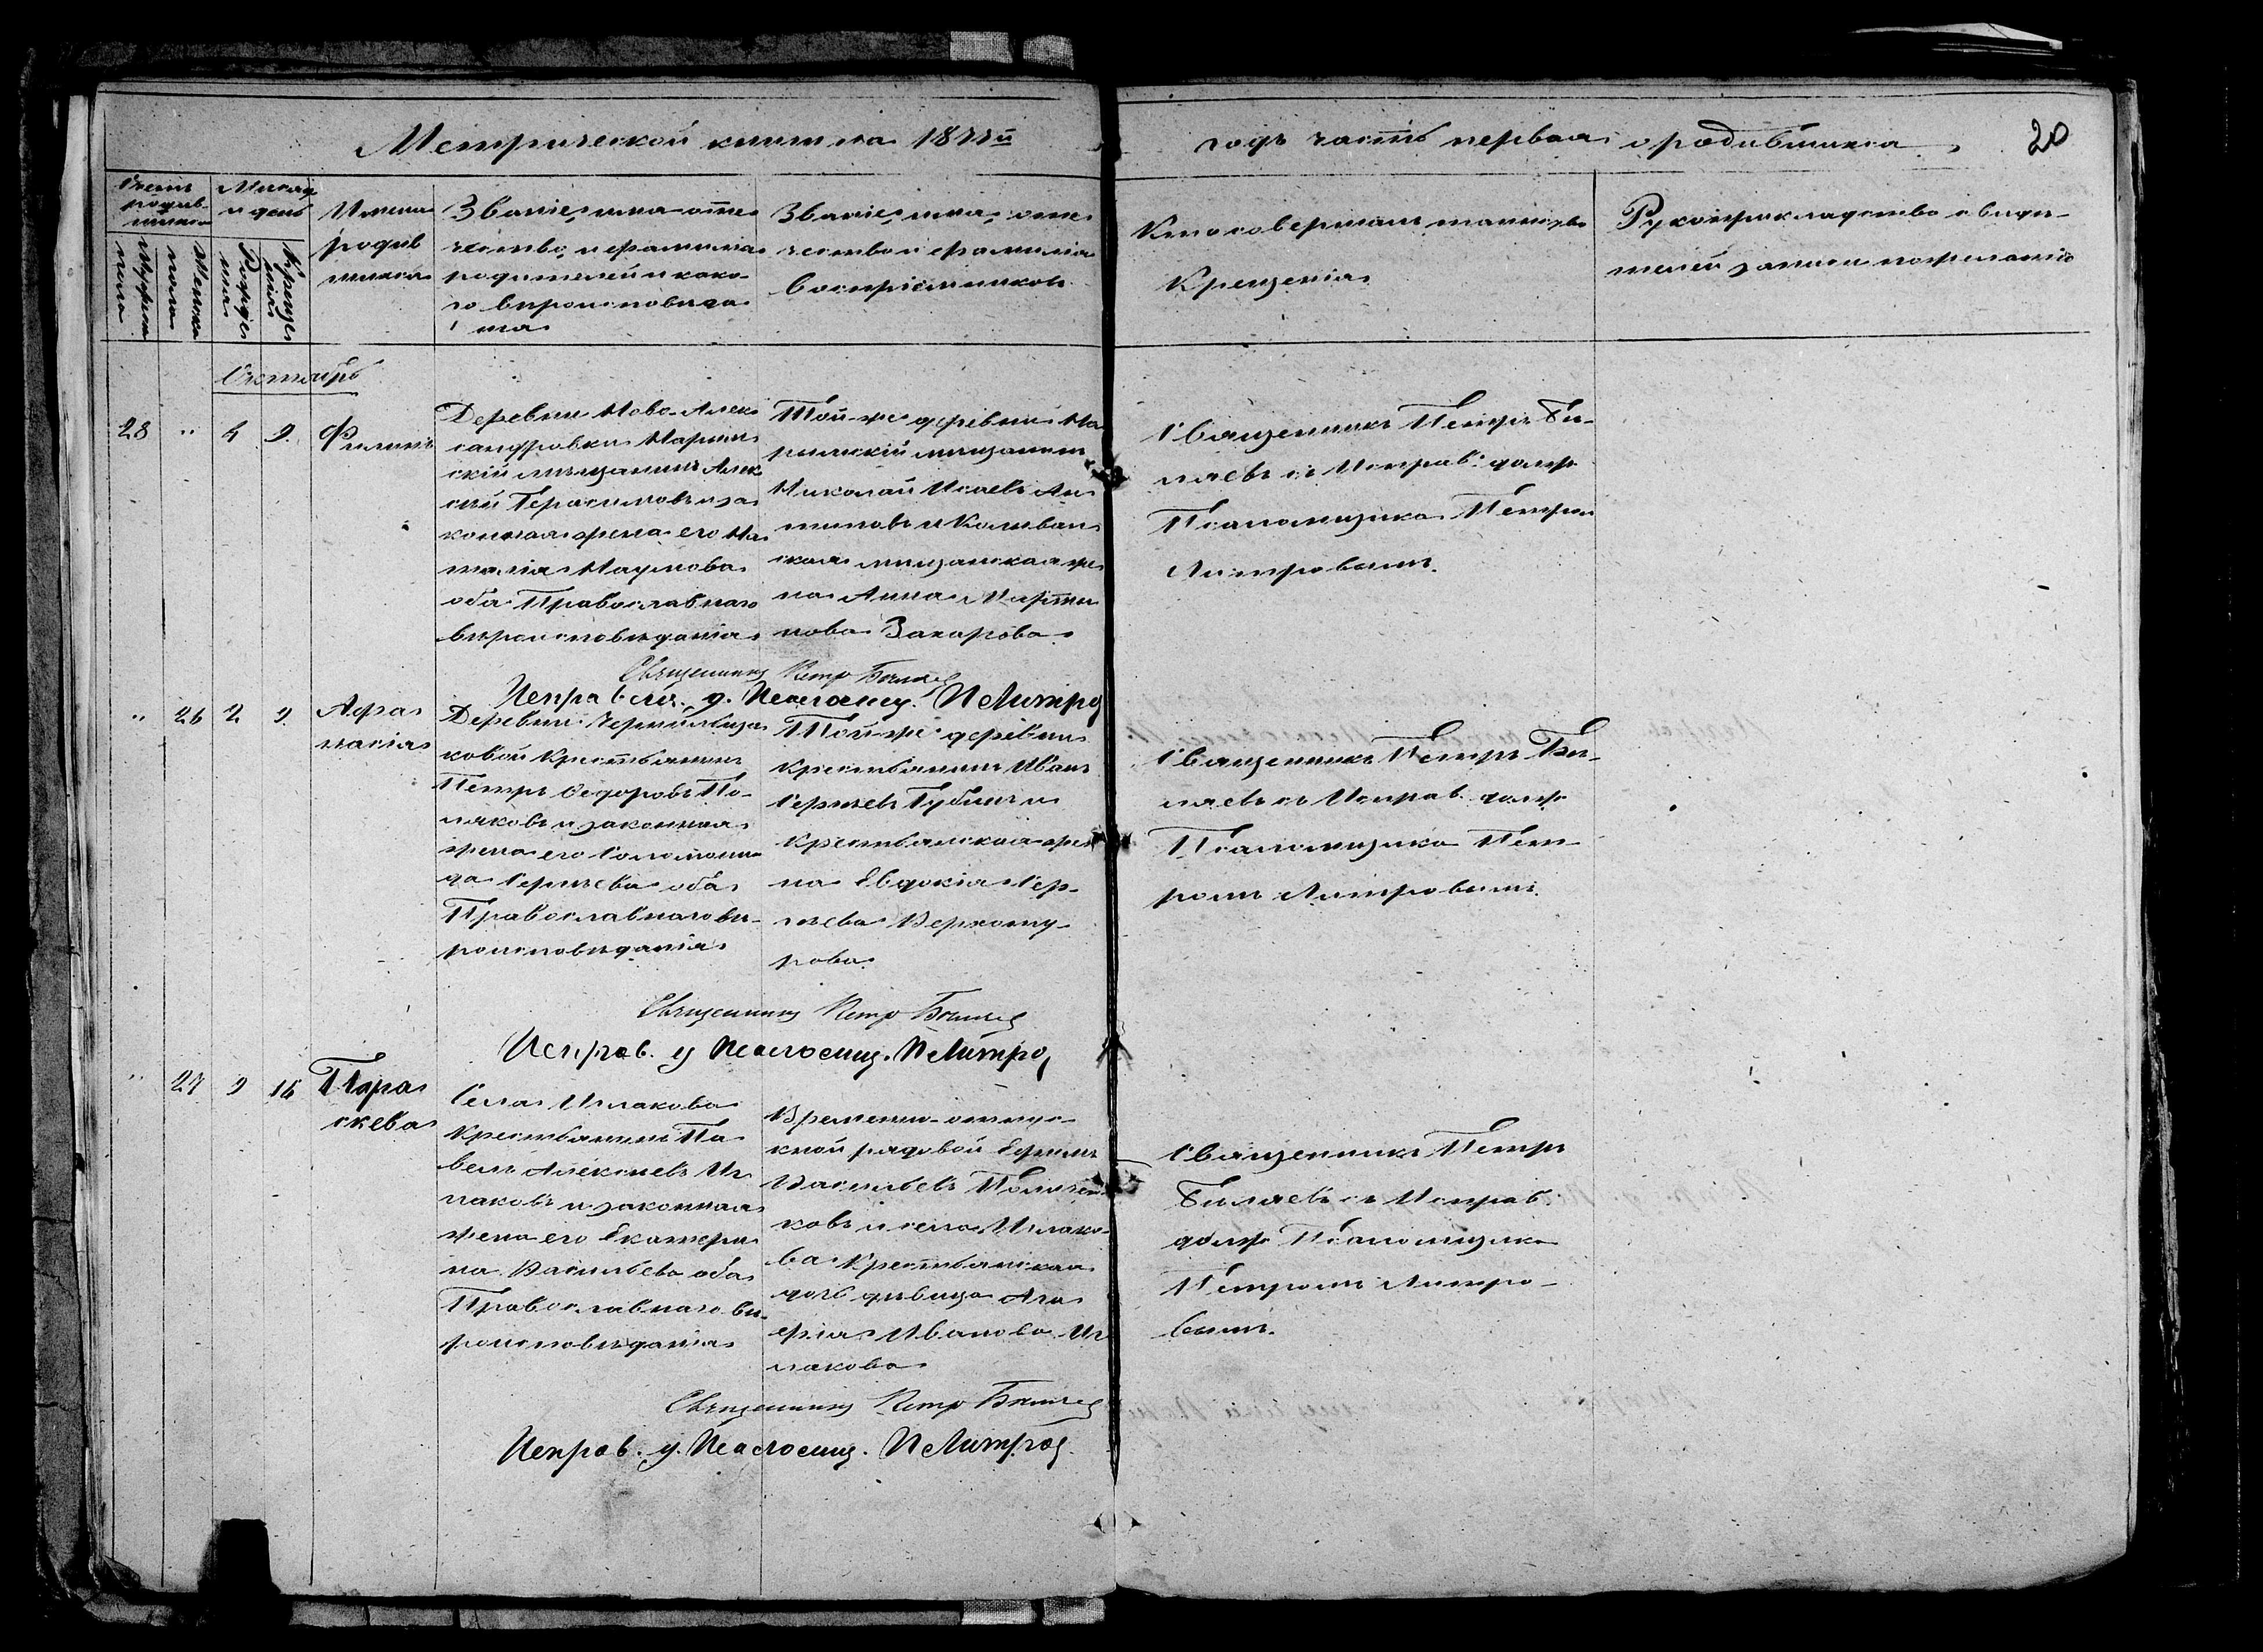 Метрической книги на 1877й
годъ часть первая о родившихся
20
Счетъ родив-шихся
Мужеска пола
Женска пола
Месяц и день
Рожде ния
Креще ния
Имена
родив
шихся
Званіе, имя отче
чество, и фамилия
родителей и како
го вероисповеда
ния
Званіе, имя, отче
чество и фамилія
воспріемниковъ
Кто совершалъ таинство
Крещенія
Рукоприкладство свиде-
телей записи по желанію
Октябрь
28
"
4
9.
Филиппъ
Деревни Ново-Алек
сандровки Нарым
скій мещанинъ Алек
сей Герасимовъ и за
конная жена его На
талія Наумова
оба Православнаго
вероисповеданія
Той-же деревни На
рымскій мещанинъ
Николай Исаевъ Ан
типовъ и Колыван
ская мещанская же
на Анна Марты
нова Захарова
Священникъ Петръ Би-
ляевъ съ Исправ. долж
Псаломщика Петром
Литровымъ.
Священникъ Петръ Биляев
Исправляю. д. Псаломщ. П Литров
"
26
2
9.
Афа
насія
Деревни
ковой Крестьянинъ
Петръ Федоровъ По-
ляковъ и законная
жена его Соломони
да Сергеева оба
Православнаго ве-
роисповеданія
Той-же деревни
Крестьянинъ Иванъ
Сергеевъ Губинъ и
Крестьянская же
на Евдокія Сер-
геева Верхоту-
рова
Священникъ Петръ Би-
ляевъ съ Исправ. долж
Псаломщика Пет-
ромъ Литровымъ.
Священникъ Петръ Биляев
Исправ. д Псаломщ. П Литров
"
27
9
16
Пара
скева
Села Ислакова
Крестьянинъ Па
велъ Алексеевъ Ис
лаковъ и законная
жена его Екатери
на Васильева оба
Православнаго ве-
роисповеданія
Временно-отпус-
кной рядовой Ефимъ
Васильевъ
ковъ и села Ислако-
ва Крестьянская
дочь девица Ага
фія Иванова Ис
лакова
Священникъ Петръ
Биляевъ съ Исправ.
долж Псаломщика
Петромъ Литро-
вымъ.
Священникъ Петръ Биляев
Исправ. д. Псаломщ. П Литров.